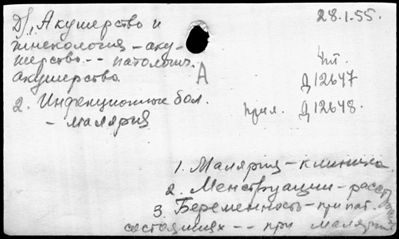 Д/1, Акушерство и
гинекология - аку-
шерство -- патологич.
акушерство
2. Инфекционные бол.
- малярия
А
28.1.55.
чит.
Д12647
прил. Д12648.
1. Малярия - клиника.
2. Менструации - расстр
3. Беременность - при пат.
состояниях -- при малярии